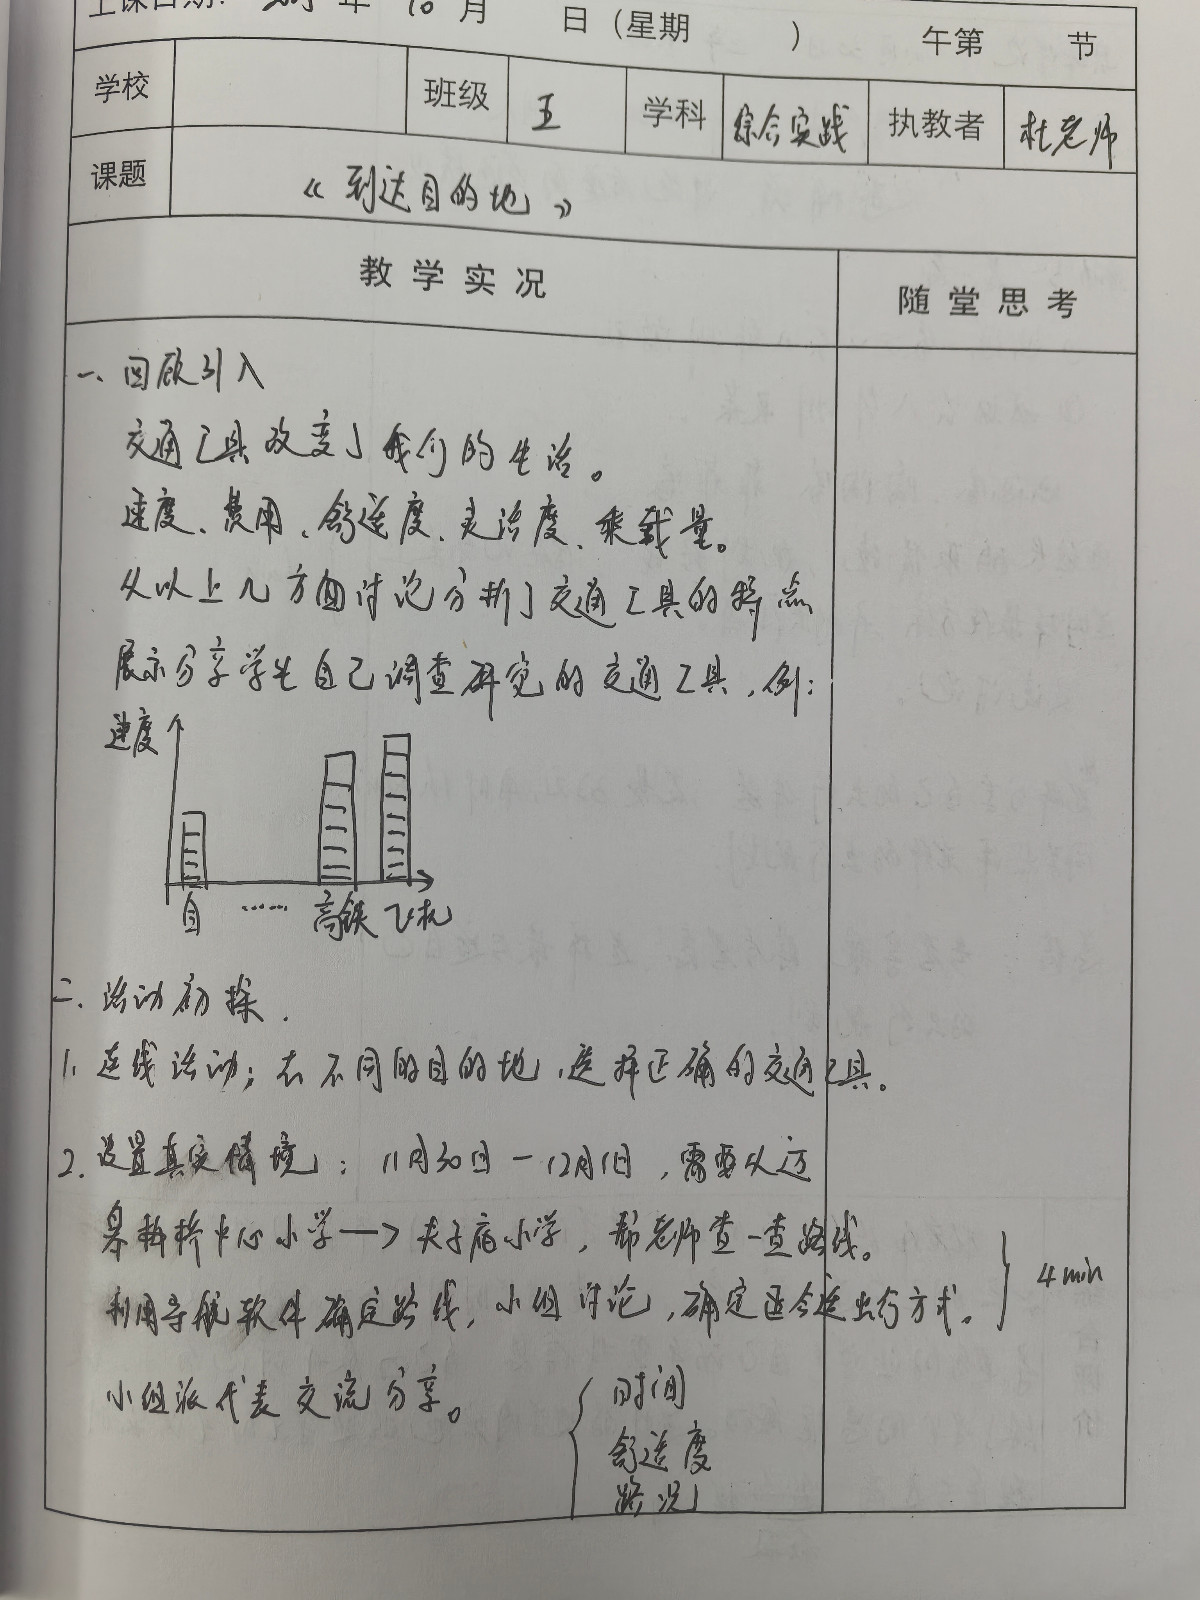 上课日期： 年 10 月 日（星期 ） 午第 节
学校 班级 五 学科 综合实践 执教者 杜老师
课题 《到达目的地》
教学实况 随堂思考
一、回顾引入
交通工具改变了我们的生活。
速度、费用、舒适度、灵活度、乘载量。
从以上几方面讨论分析了交通工具的特点
展示分享学生自己调查研究的交通工具，例：
速度
自 …… 高铁 飞机
二、活动初探.
1. 连线活动：去不同的目的地，选择正确的交通工具。
2. 设置真实情境：11月30日－12月1日，需要从迈
皋桥中心小学—>夫子庙小学，帮老师查一查路线。
利用导航软件确定路线，小组讨论，确定适合 出行方式。 4min
小组派代表交流分享。
时间
舒适度
路况